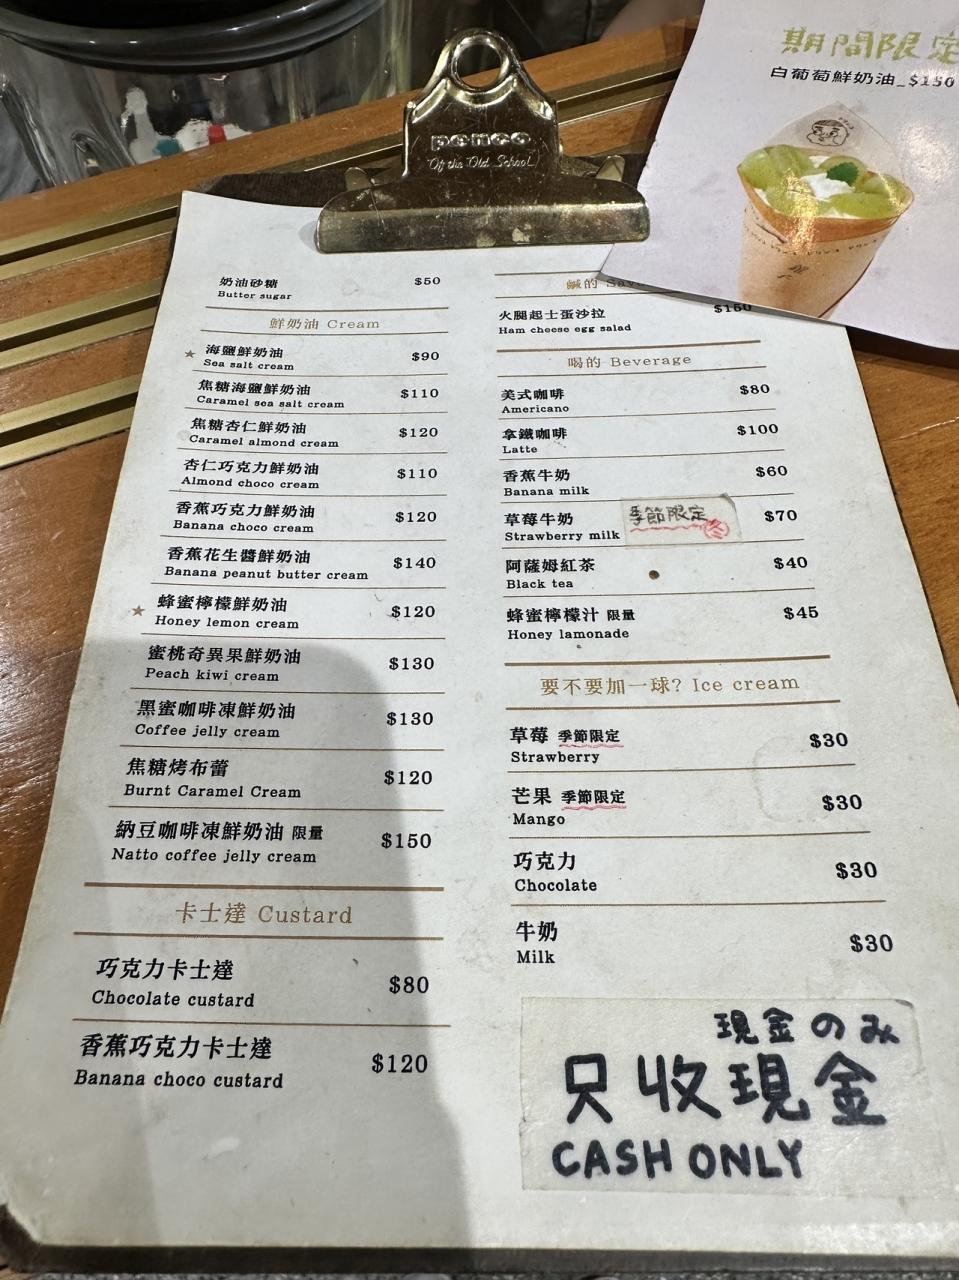 penco
Of the Old School
期間限定
白葡萄鮮奶油_$150
奶油砂糖 $50
Butter sugar
鮮奶油 Cream
★ 海鹽鮮奶油 $90
Sea salt cream
焦糖海鹽鮮奶油 $110
Caramel sea salt cream
焦糖杏仁鮮奶油 $120
Caramel almond cream
杏仁巧克力鮮奶油 $110
Almond choco cream
香蕉巧克力鮮奶油 $120
Banana choco cream
香蕉花生醬鮮奶油 $140
Banana peanut butter cream
★ 蜂蜜檸檬鮮奶油 $120
Honey lemon cream
蜜桃奇異果鮮奶油 $130
Peach kiwi cream
黑蜜咖啡凍鮮奶油 $130
Coffee jelly cream
焦糖烤布蕾 $120
Burnt Caramel Cream
納豆咖啡凍鮮奶油 限量 $150
Natto coffee jelly cream
卡士達 Custard
巧克力卡士達 $80
Chocolate custard
香蕉巧克力卡士達 $120
Banana choco custard
鹹的
火腿起士蛋沙拉 $150
Ham cheese egg salad
喝的 Beverage
美式咖啡 $80
Americano
拿鐵咖啡 $100
Latte
香蕉牛奶 $60
Banana milk
草莓牛奶 季節限定 冬 $70
Strawberry milk
阿薩姆紅茶 $40
Black tea
蜂蜜檸檬汁 限量 $45
Honey lamonade
要不要加一球? Ice cream
草莓 季節限定 $30
Strawberry
芒果 季節限定 $30
Mango
巧克力 $30
Chocolate
牛奶 $30
Milk
現金のみ
只收現金
CASH ONLY